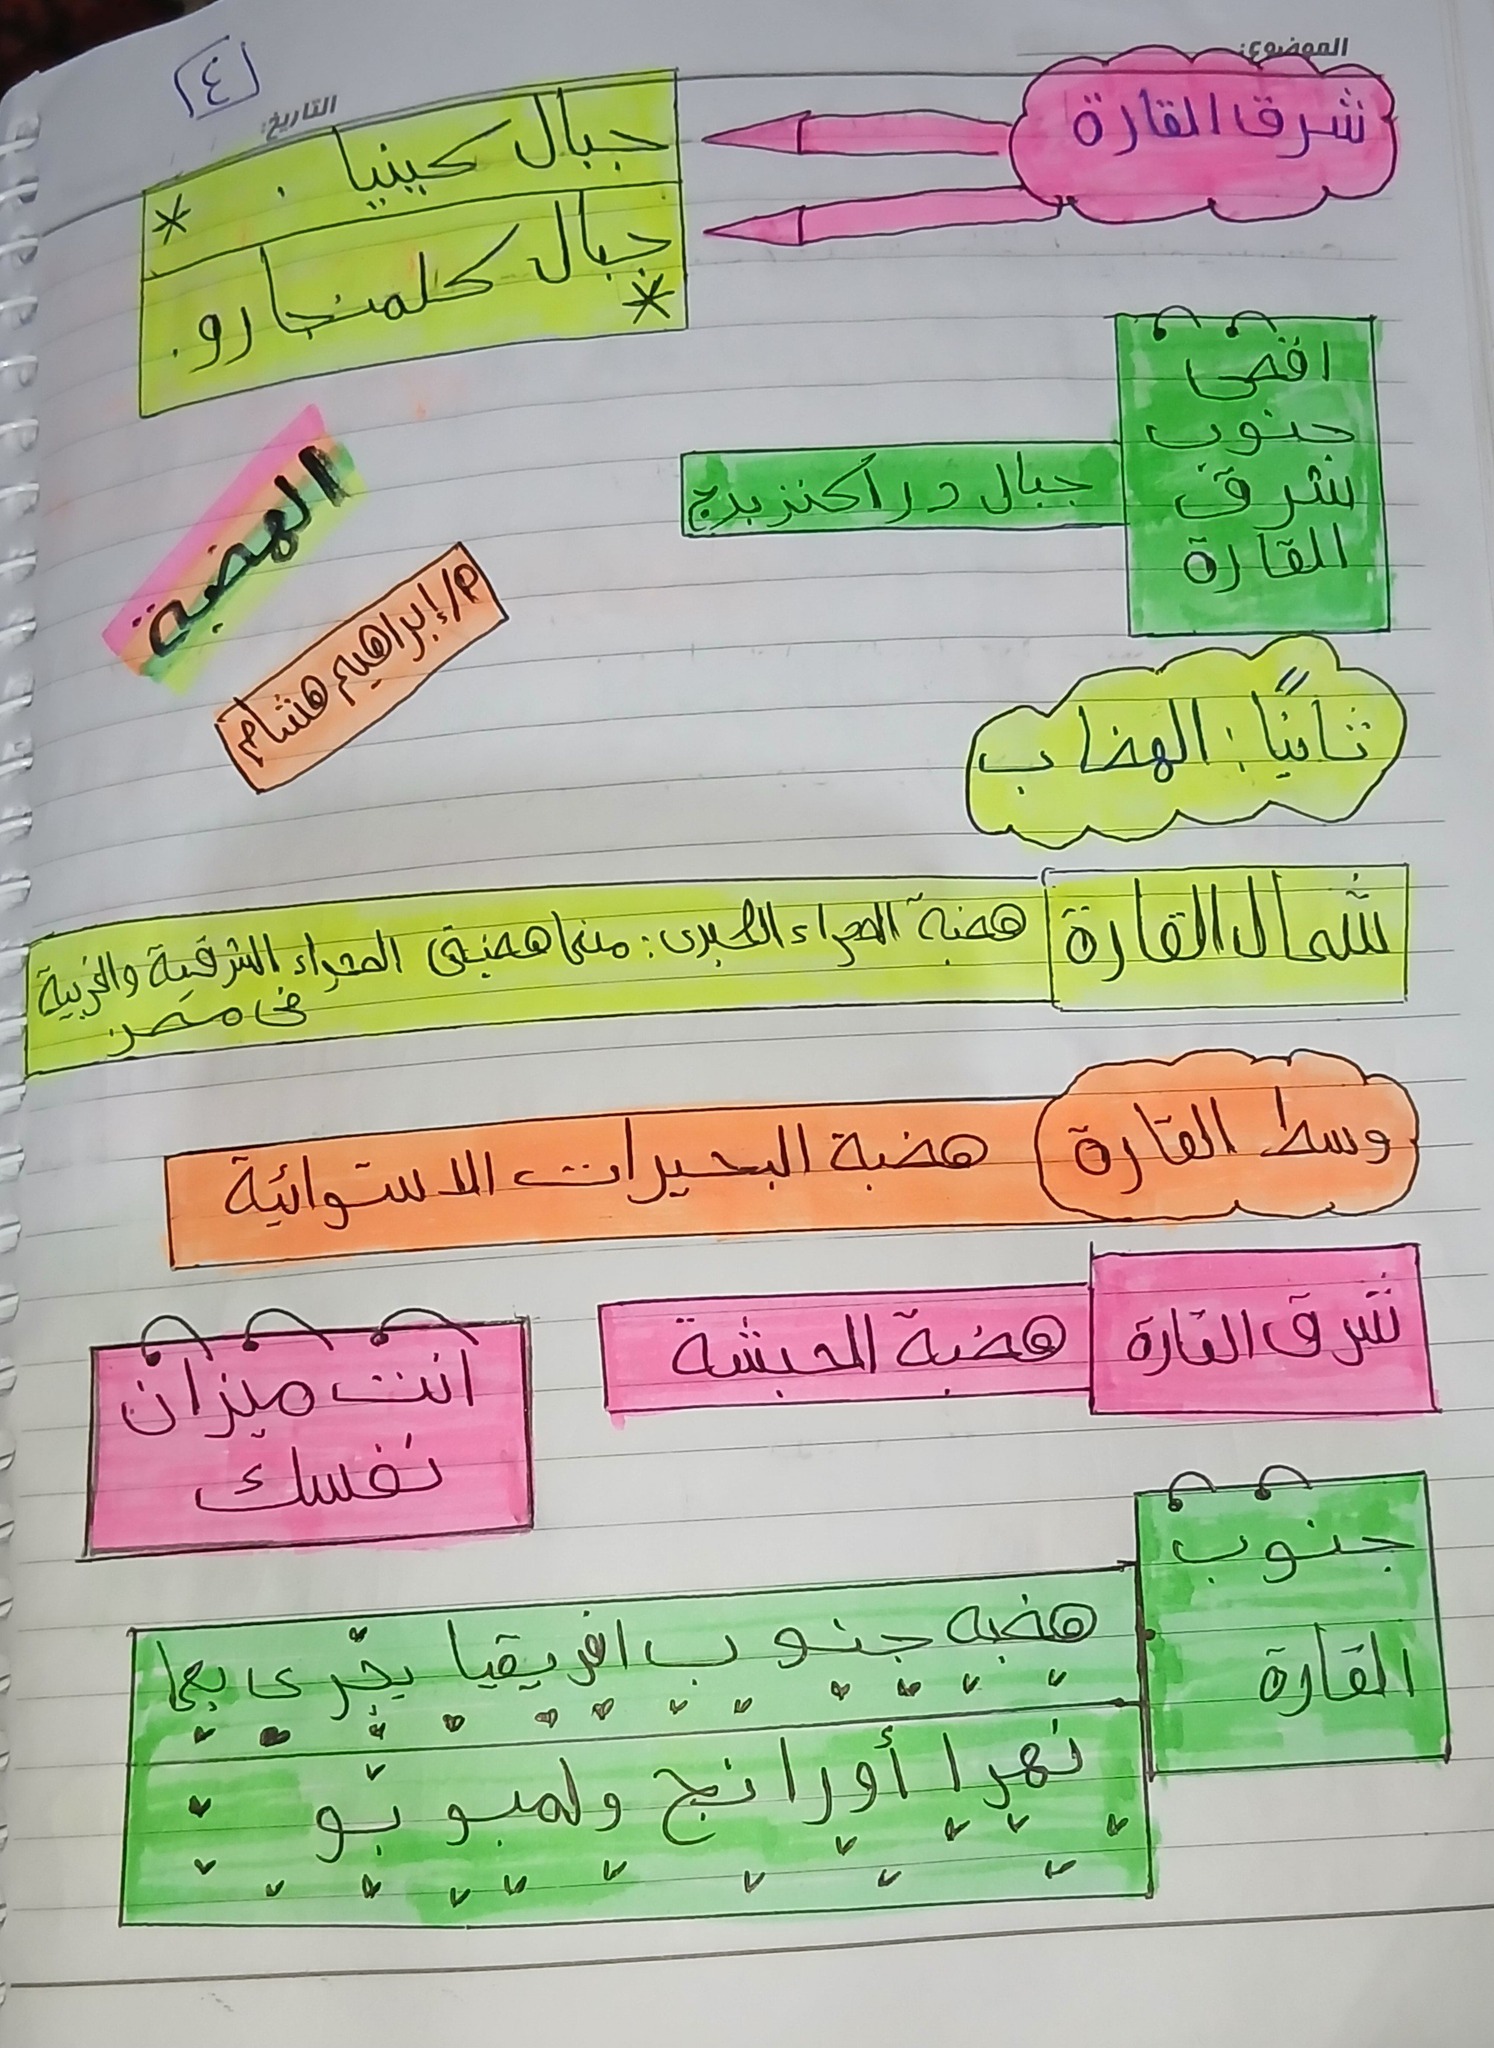 الموضوع:
التاريخ:
٤
شرق القارة
جبال كينيا.
جبال كلمنجارو.
اقصى
جنوب
شرق
القارة
جبال دراكنزبرج
الهضبة
م/إبراهيم هشام
ثانيًا: الهضاب
شمال القارة
هضبة الصحراء الكبرى: منها هضبتى الصحراء الشرقية والغربية
فى مصر
وسط القارة
هضبة البحيرات الاستوائية
شرق القارة
هضبة الحبشة
انت ميزان
نفسك
جنوب
القارة
هضبه جنوب افريقيا يجرى بها
نهرا أورانج ولمبوبو